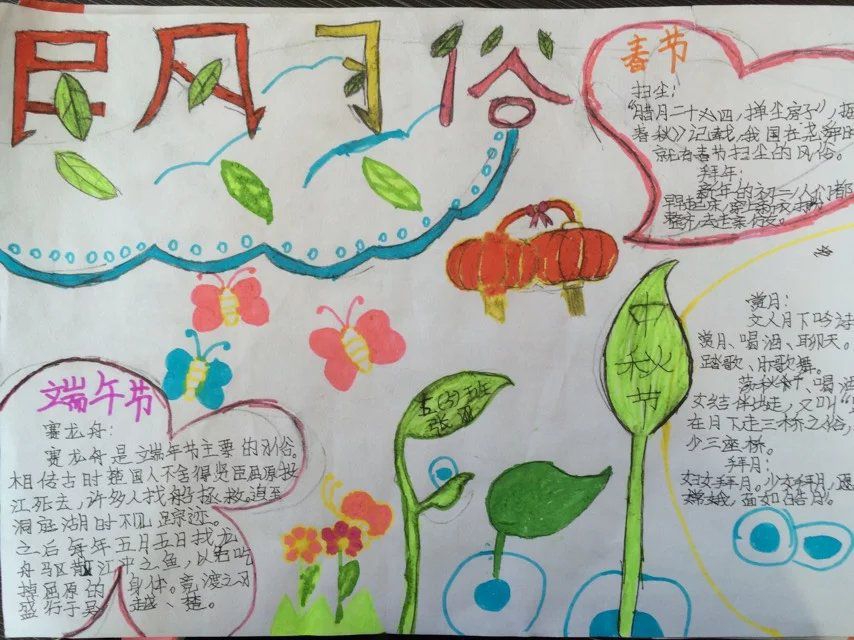 民风习俗
春节
扫尘:
"腊月二十四,掸尘房子",据
春秋》记载,我国在尧舜时
就有春节扫尘的风俗。
拜年:
新年的初一人们都
早早起来,穿上
整齐,去走亲访友。
赏月:
文人月下吟诗
赏月、喝酒、聊天。
踏歌、乐歌舞。
喝酒
女结伴出走,又叫"
在月下走三桥之俗,
少三座桥。
拜月:
妇女拜月。少女拜月,愿
嫦娥,面如皓月。
中秋节
五(3)班
张
端午节
赛龙舟:
赛龙舟是端午节主要的习俗。
相传古时楚国人不舍得贤臣屈原投
江死去,许多人找船拯救。追至
洞庭湖时不见踪迹。
之后每年五月五日找龙
舟以驱散江中之鱼,以免吃
掉屈原的身体。竞渡之习
盛行于吴、越、楚。